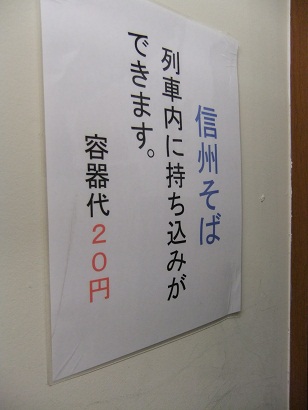 信州そば
列車内に持ち込みが
できます。
容器代２０円